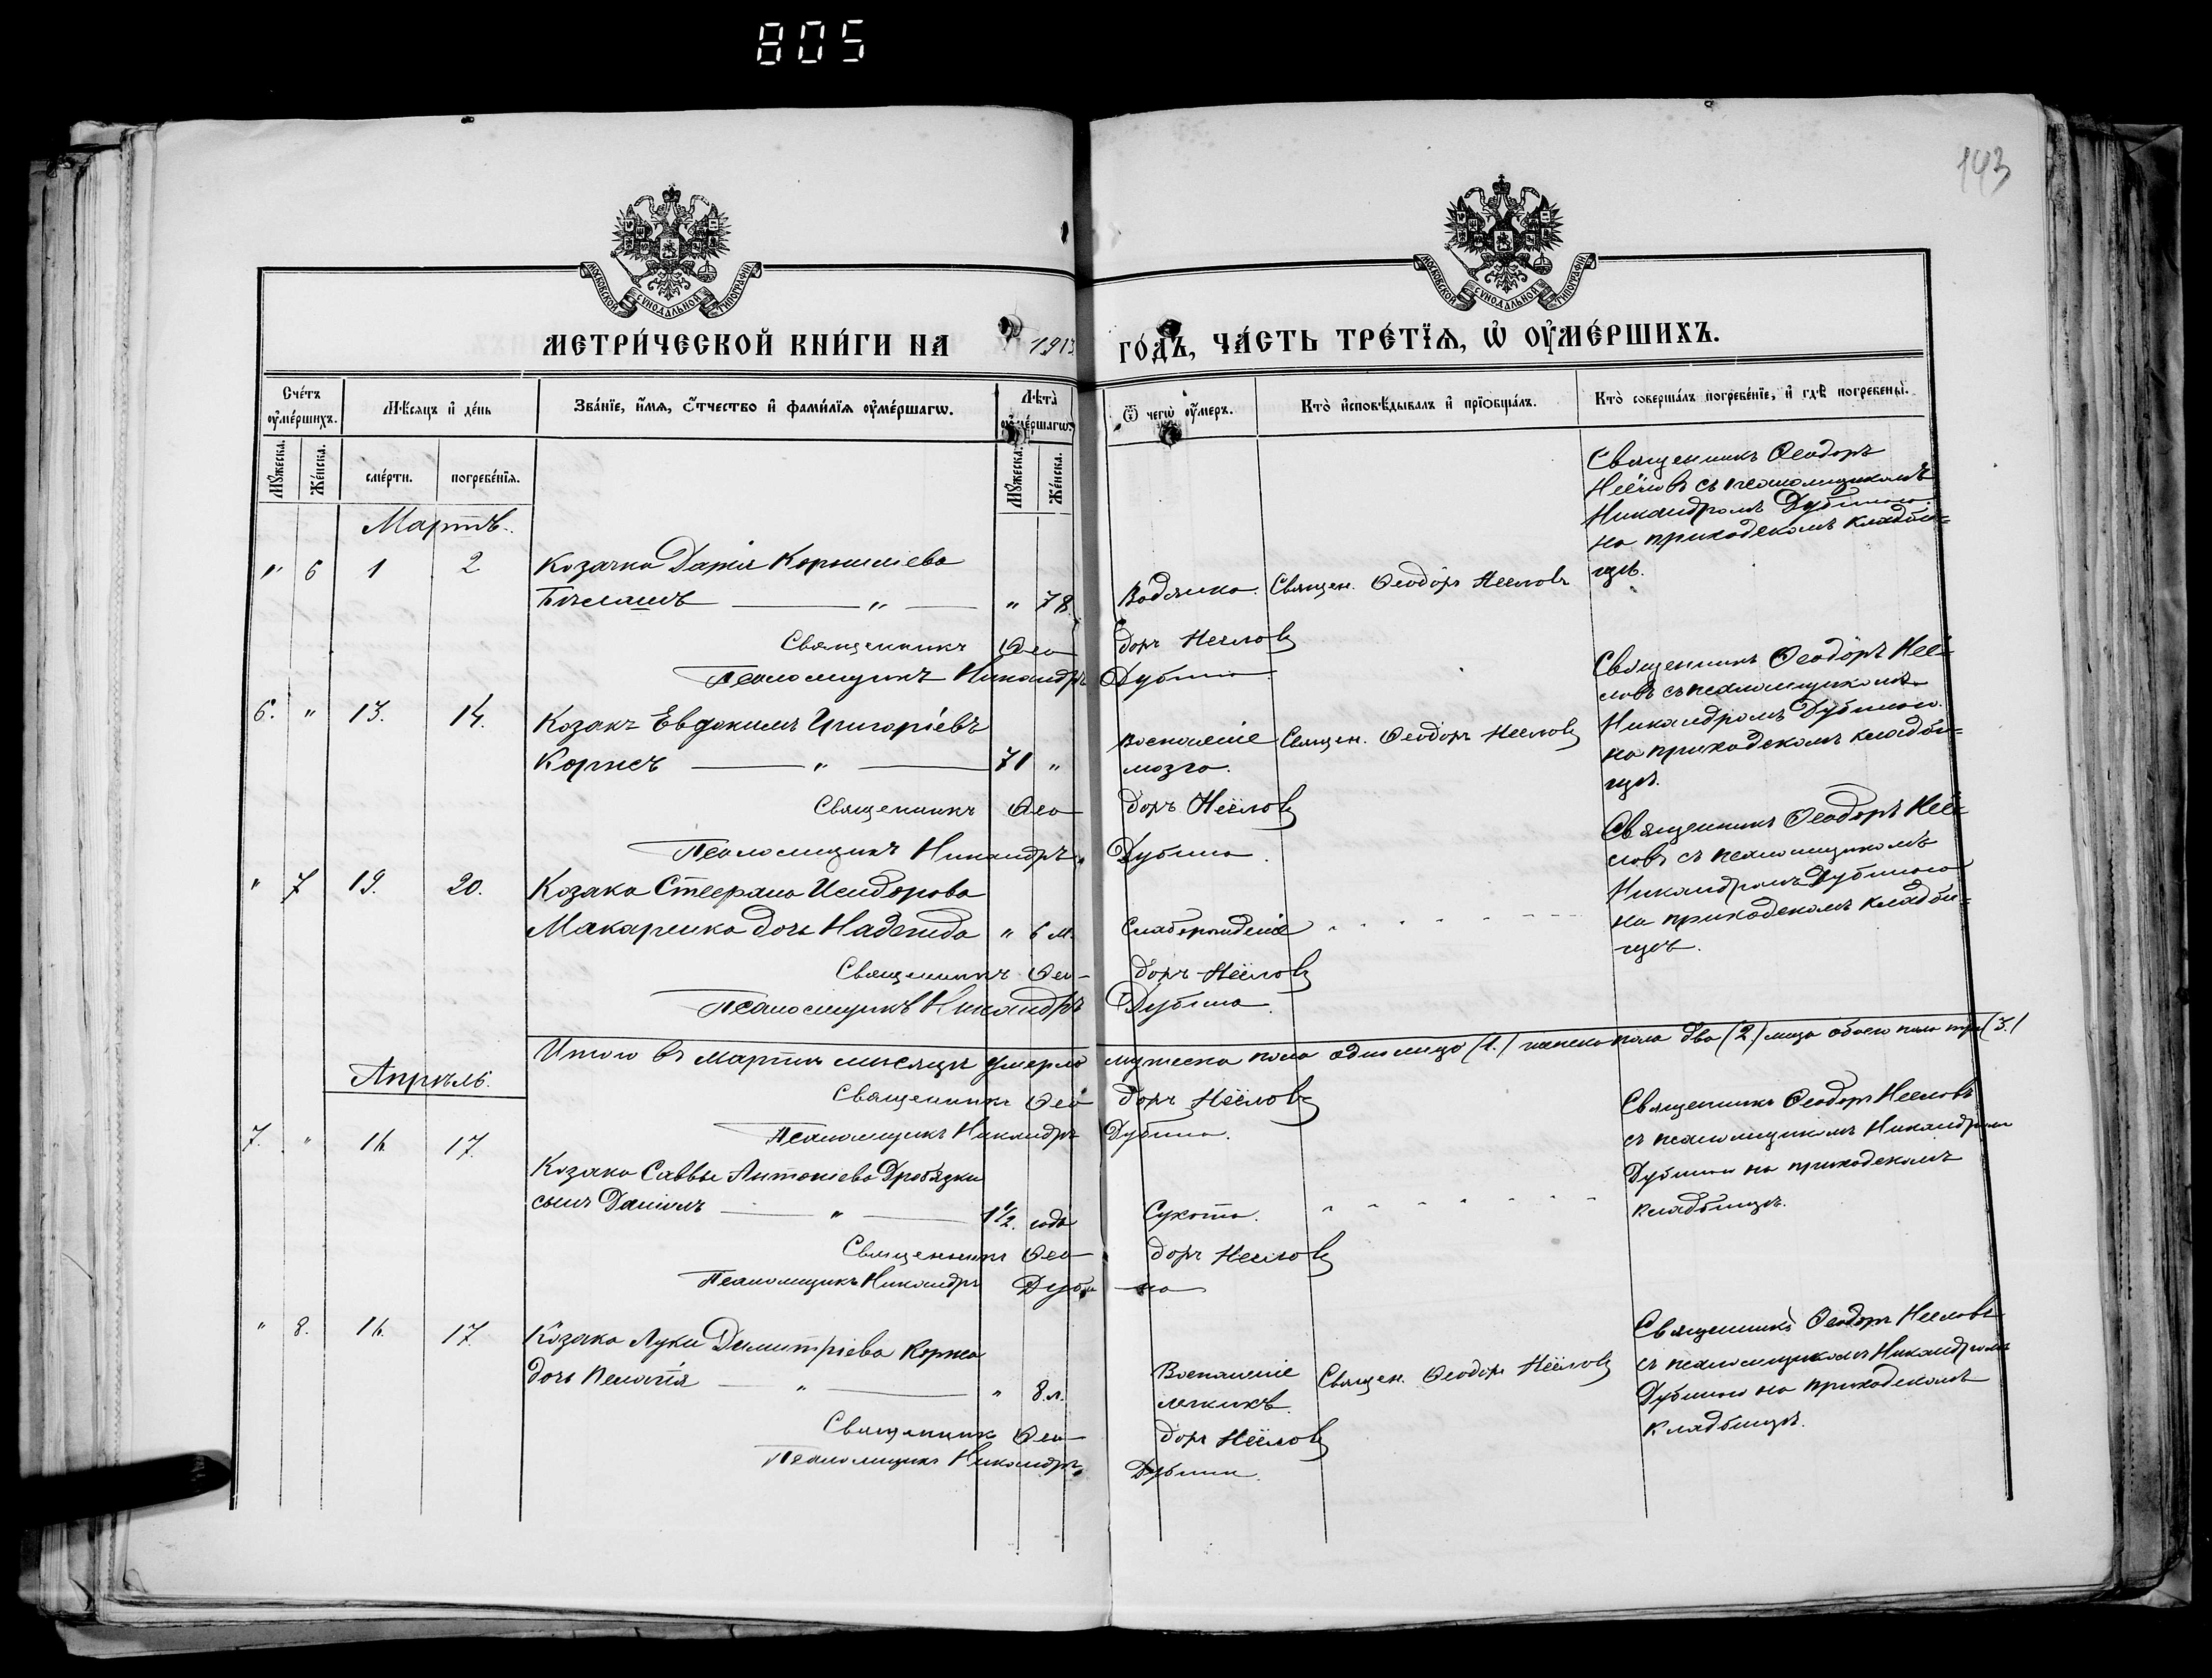 805
143
МОСКОВСКОЙ СѴНОДАЛЬНОЙ ТИПОГРАФІИ
МОСКОВСКОЙ СѴНОДАЛЬНОЙ ТИПОГРАФІИ
МЕТРИ́ЧЕСКОЙ КНИ́ГИ НА 1913 ГО́ДЪ, ЧА́СТЬ ТРЕ́ТЇѦ, Ѡ҆ ОУ҆МЕ́РШИХЪ.
Сче́тъ оу҆ме́ршихъ.
Мѣ́сѧцъ и҆ де́нь
Зва́нїе, и҆́мѧ, ѻ҆́тчество и҆ фами́лїѧ оу҆ме́ршагѡ.
Лѣ́та̀ оу҆ме́ршагѡ.
Ѿ чегѡ̀ оу҆́меръ.
Кто̀ и҆сповѣ́дывалъ и҆ прїѡбща́лъ.
Кто̀ соверша́лъ погребе́нїе, и҆ гдѣ̀ погребены̀.
Мꙋ́жеска.
Же́нска.
сме́рти.
погребе́нїѧ.
Мꙋ́жеска.
Же́нска.
Мартъ.
" 6 1 2 Козачка Дарія Корнилиева
" 78. Водянка. Священ. Ѳеодоръ Неёловъ
Священникъ Ѳеодоръ Неёловъ съ псаломщикомъ Никандромъ Дубиною на приходскомъ кладби=
щѣ.
Священникъ Ѳеодоръ Неёловъ
Псаломщикъ Никандръ Дубина
6. " 13. 14. Козакъ Евдокимъ Григоріевъ
Коржъ " 71 " Воспаленіе мозга. Священ. Ѳеодоръ Неёловъ
Священникъ Ѳеодоръ Неё-
ловъ съ псаломщикомъ
Никандромъ Дубиною
на приходскомъ кладби=
щѣ.
Священникъ Ѳеодоръ Неёловъ
Псаломщикъ Никандръ Дубина.
" 7 19. 20. Козака Стефана Исидорова
Макаренка дочь Надежда " 6 м. Слаборожденіе " - - - -
Священникъ Ѳеодоръ Неё-
ловъ съ псаломщикомъ
Никандромъ Дубиною
на приходскомъ кладби=
щѣ.
Священникъ Ѳео- доръ Неёловъ
Псаломщикъ Никандръ Дубина.
Итого въ Мартѣ мѣсяцѣ умерло мужеска пола одно лицо (1.) женска пола два (2) лица обоего пола три (3.)
Апрѣль.
Священникъ Ѳео доръ Неёловъ
Псаломщикъ Никандръ Дубина.
7. " 16. 17. Козака Саввы Антоніева Дробязки
сынъ Даніилъ " 1½ года Сухота. " - - - - -
Священникъ Ѳеодоръ Неёловъ
съ псаломщикомъ Никандромъ
Дубиною на приходскомъ
кладбищѣ.
Священникъ Ѳео- доръ Неёловъ
Псаломщикъ Никандръ Дуби- на
" 8. 16. 17. Козака Луки Димитріева Коржа
дочь Пелагія " " 8 л. Воспаленіе легкихъ. Священ. Ѳеодоръ Неёловъ
Священникъ Ѳеодоръ Неёловъ
съ псаломщикомъ Никандромъ
Дубиною на приходскомъ
кладбищѣ.
Священникъ Ѳео- доръ Неёловъ
Псаломщикъ Никандръ Дубина.